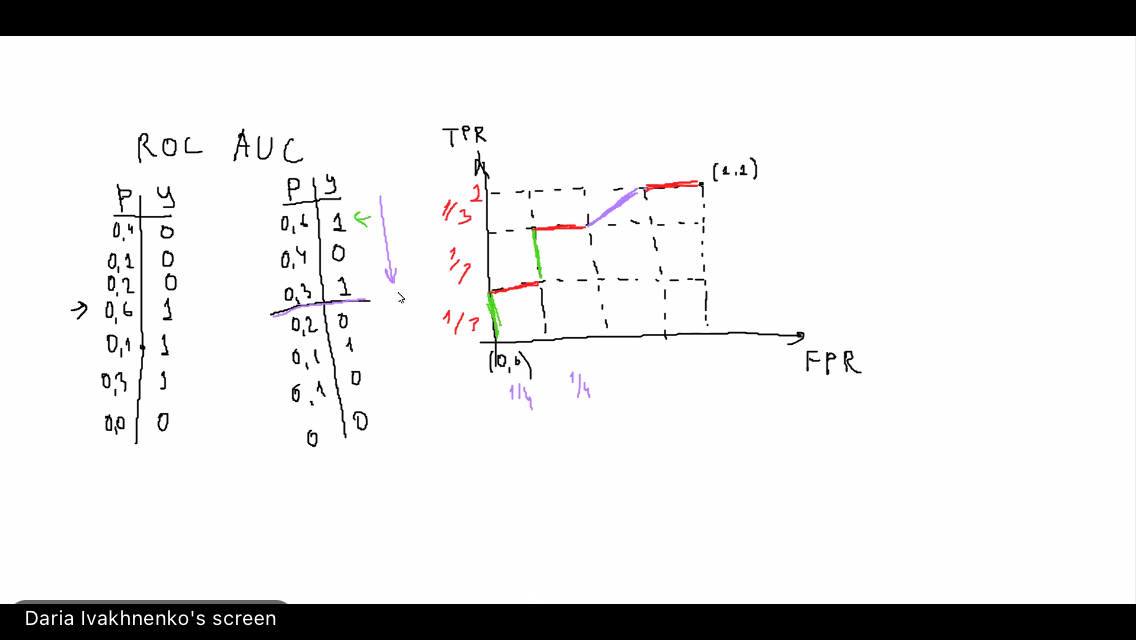 ROC AUC
P y
0,4 0
0,1 0
0,2 0
→ 0,6 1
0,1 1
0,3 1
0,0 0
P y
0,6 1 ←
0,4 0
0,3 1
0,2 0
0,1 1
0,1 0
0 0
TPR
(1,1)
1/3
1/3
1/3
(0,0)
FPR
1/4 1/4
Daria Ivakhnenko's screen